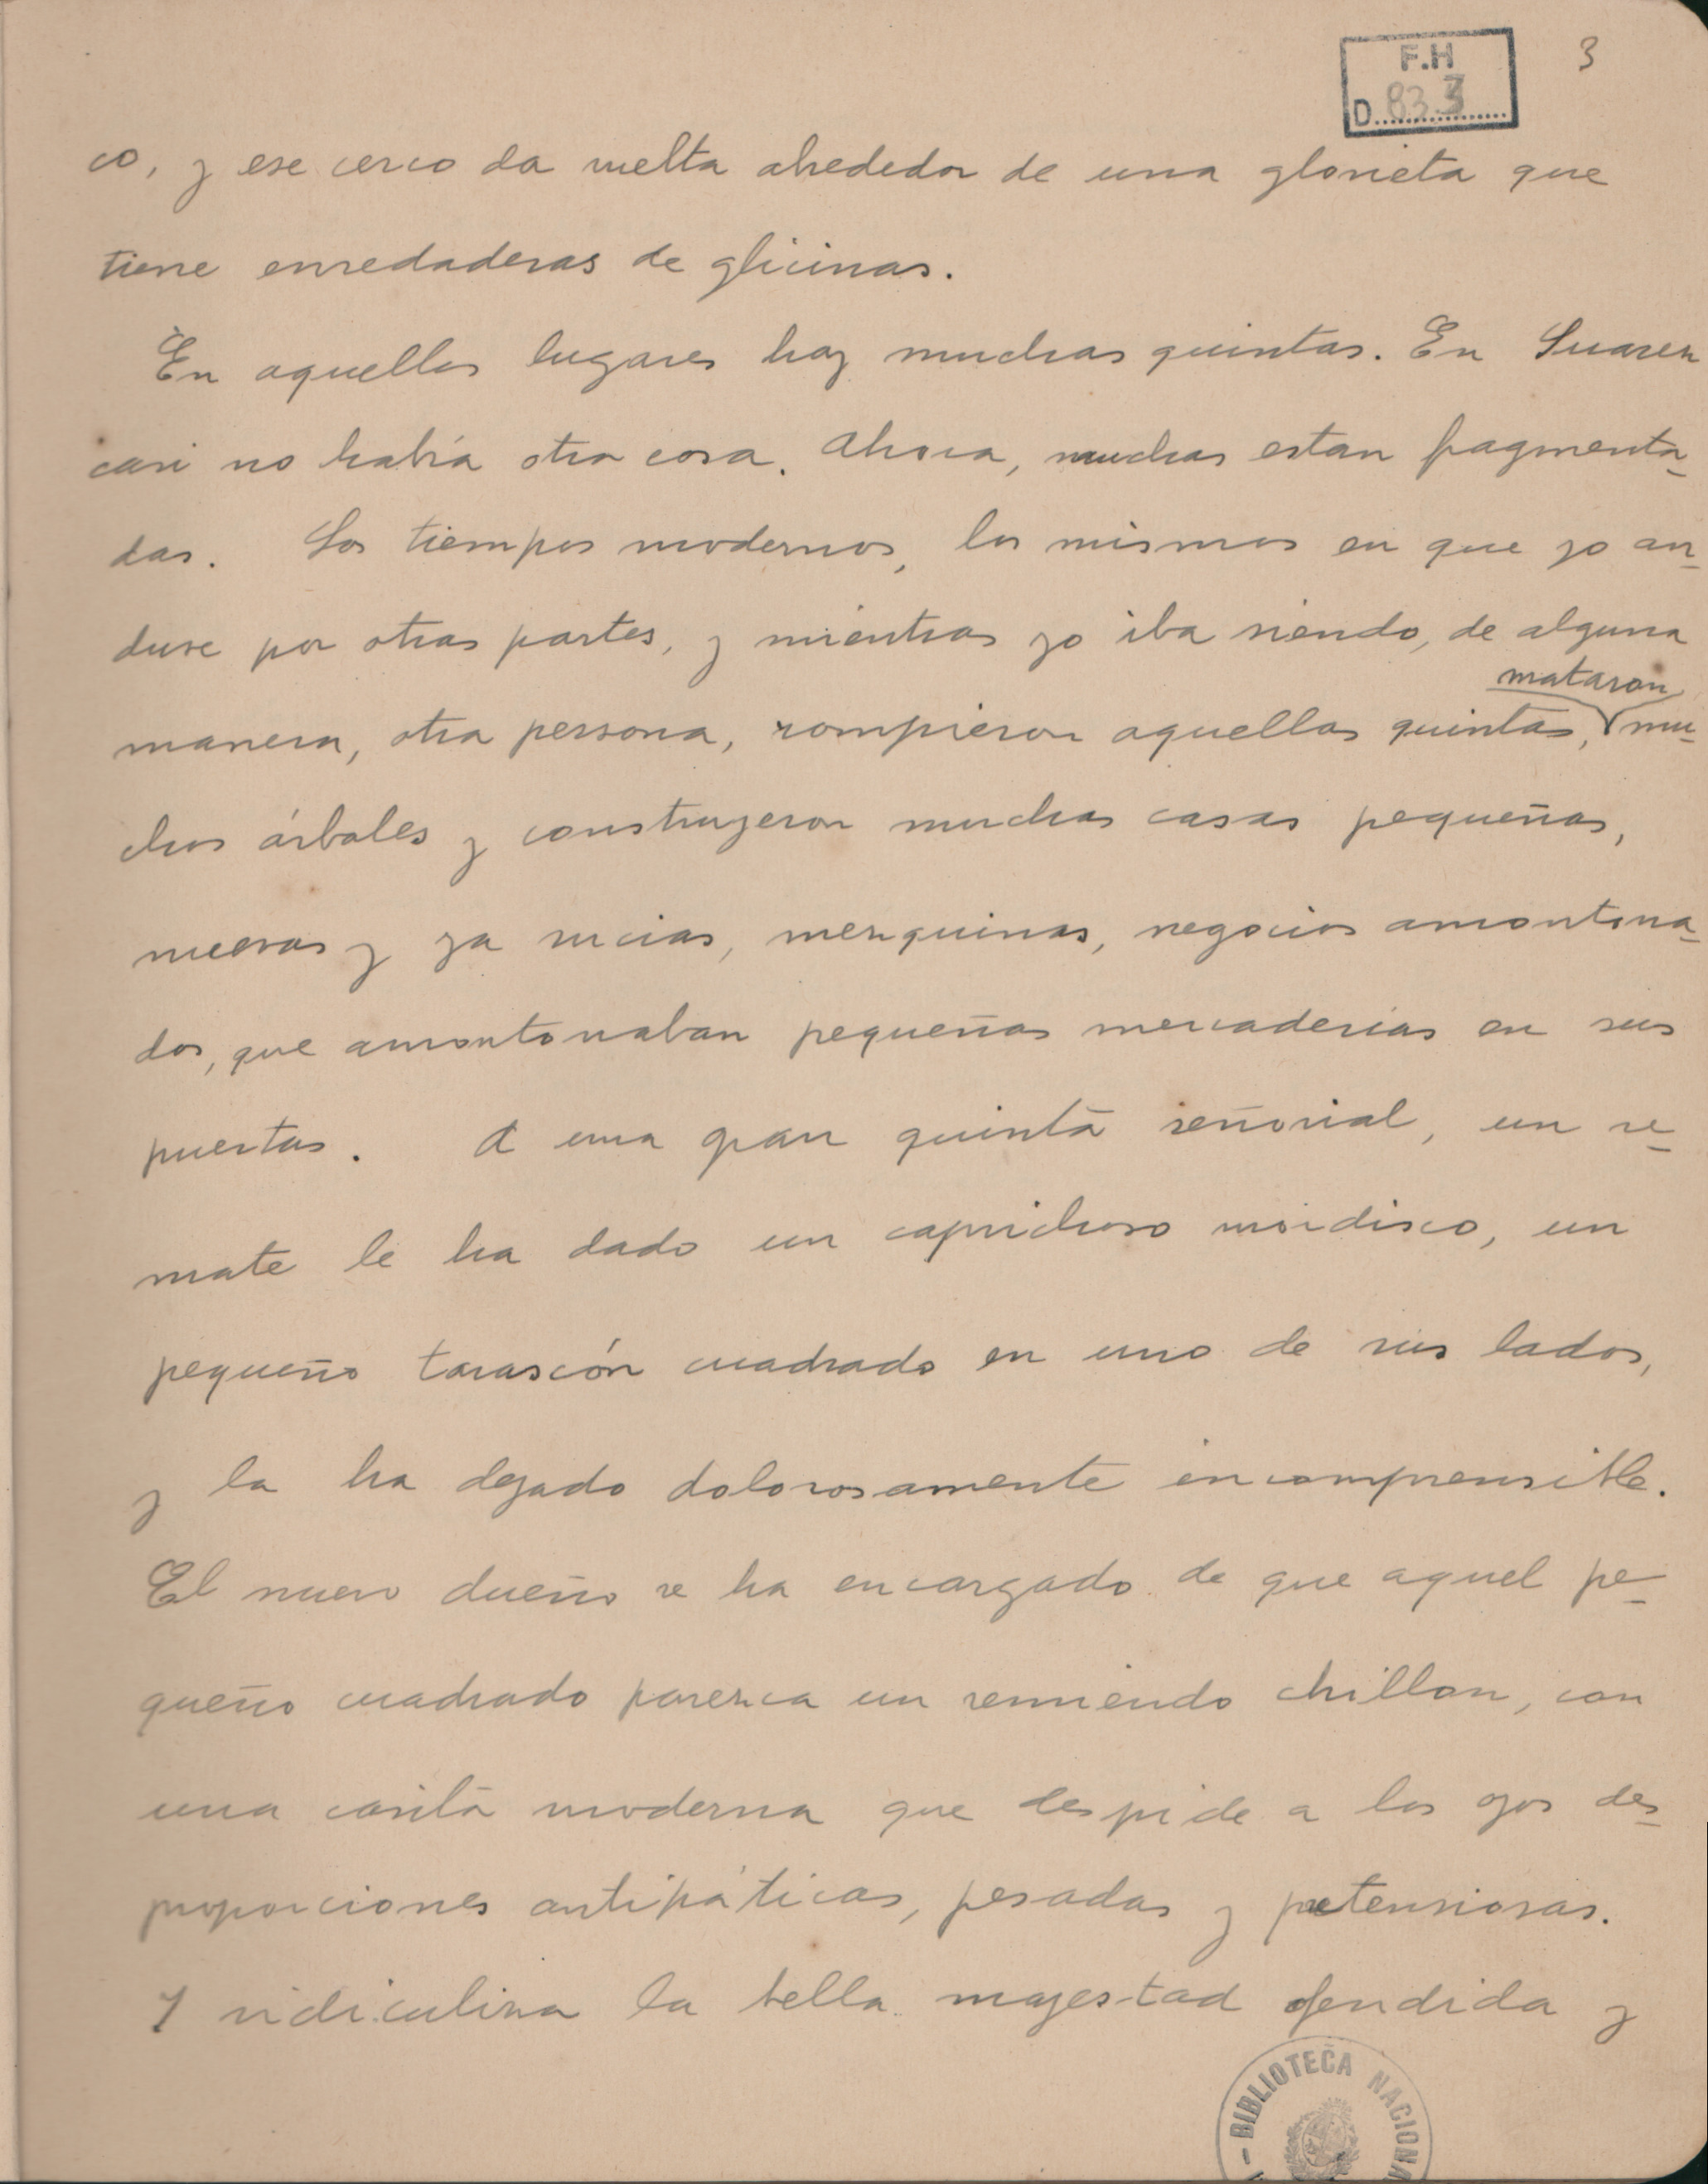 F.H
D. 833
3
co, y ese cerco da vuelta alrededor de una glorieta que
tiene enredaderas de glicinas.
En aquellos lugares hay muchas quintas. En Suarez
casi no había otra cosa. Ahora, muchas estan fragmenta-
das. Los tiempos modernos, los mismos en que yo an-
duve por otras partes, y mientras yo iba siendo, de alguna
mataron
manera, otra persona, rompieron aquellas quintas, mu-
chos árboles y construyeron muchas casas pequeñas,
nuevas y ya sucias, mezquinas, negocios amontona-
dos, que amontonaban pequeñas mercaderías en sus
puertas. A una gran quinta señorial, un re-
mate le ha dado un caprichoso mordisco, un
pequeño tarascón cuadrado en uno de sus lados,
y la ha dejado dolorosamente incomprensible.
El nuevo dueño se ha encargado de que aquel pe-
queño cuadrado parezca un remiendo chillon, con
una casita moderna que despide a los ojos des-
proporciones antipáticas, pesadas y pretensiosas.
Y ridiculiza la bella majestad ofendida y
BIBLIOTECA NACIONA